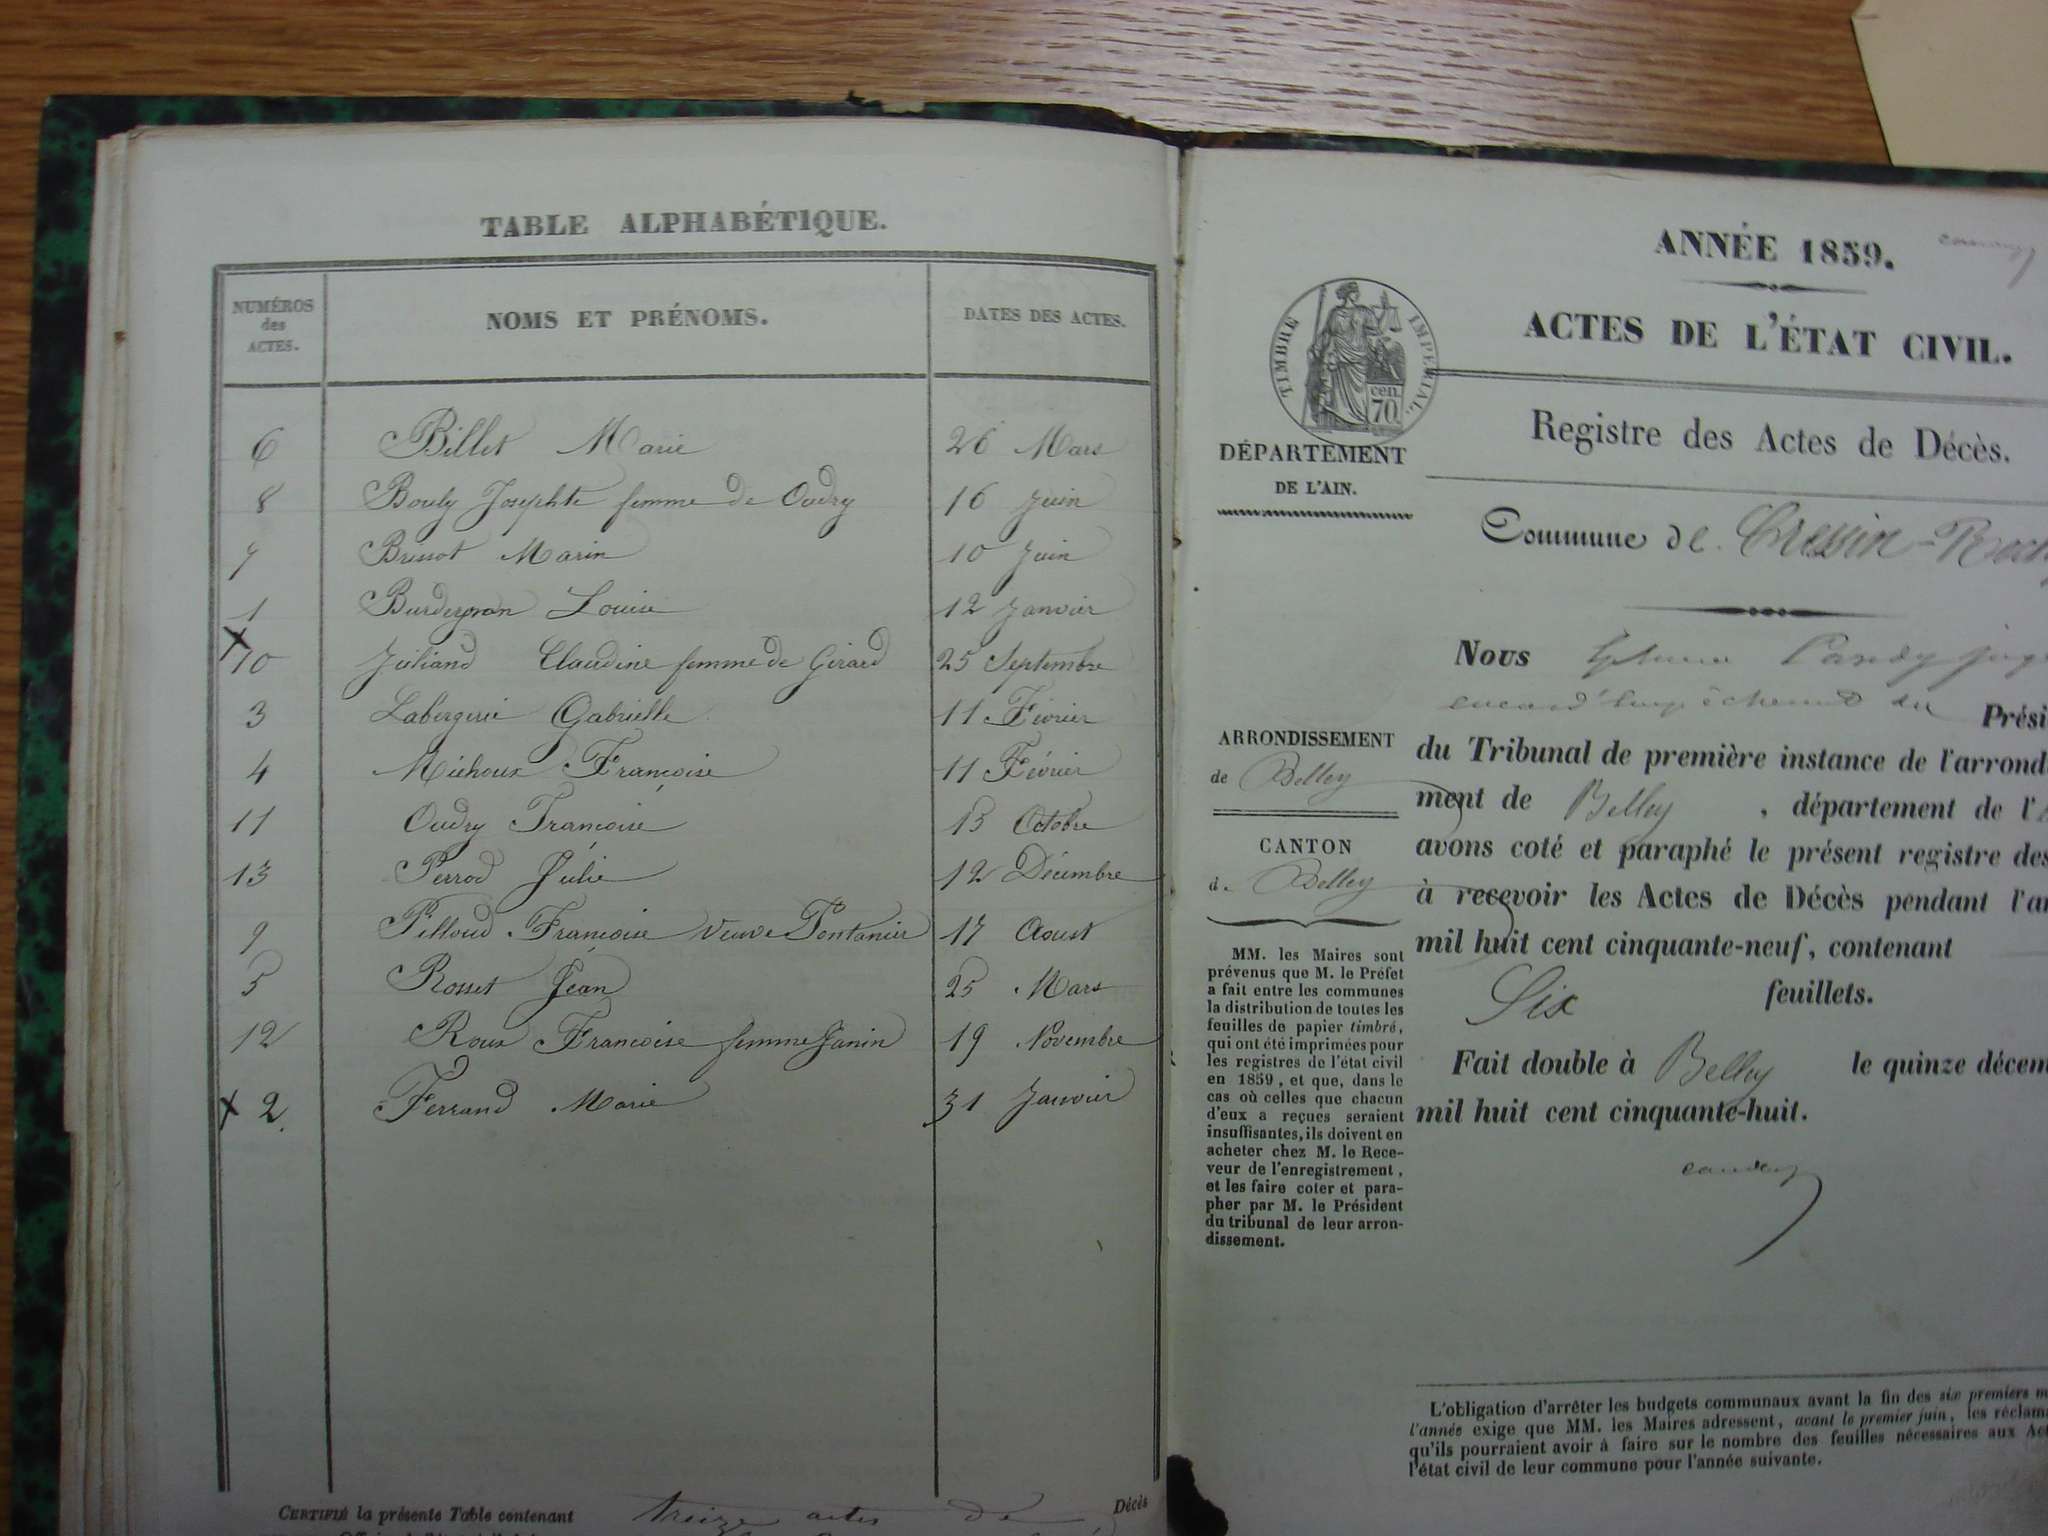 TABLE ALPHABÉTIQUE.
NUMÉROS des ACTES. NOMS ET PRÉNOMS. DATES DES ACTES.
6 Billet Marie 26 Mars
8 Bouly Josephte femme de Oudry 16 Juin
7 Brissot Marin 10 Juin
1 Burdeyron Louise 12 Janvier
X 10 Juliand Claudine femme de Girard 25 Septembre
3 Labergerie Gabrielle 11 Février
4 Michoux Françoise 11 Février
11 Oudry Françoise 15 Octobre
13 Perrod Julie 12 Décembre
9 Pilloud Françoise veuve Pontanier 17 Aoust
5 Rosset Jéan 25 Mars
12 Roux Françoise femme Janin 19 Novembre
X 2. Ferrand Marie 31 Janvier
CERTIFIÉ la présente Table contenant treize actes de Décès
ANNÉE 1859.
ACTES DE L'ÉTAT CIVIL.
TIMBRE IMPÉRIAL.
cen. 70
DÉPARTEMENT
DE L'AIN.
Registre des Actes de Décès.
Commune de Cressin-Roch
Nous
en cas d'empêchement du Prési
ARRONDISSEMENT
de Belley
CANTON
de Belley
du Tribunal de première instance de l'arrond
ment de Belley, département de l'A
avons coté et paraphé le présent registre des
à recevoir les Actes de Décès pendant l'an
mil huit cent cinquante-neuf, contenant
Six feuillets.
Fait double à Belley le quinze décem
mil huit cent cinquante-huit.
MM. les Maires sont
prévenus que M. le Préfet
a fait entre les communes
la distribution de toutes les
feuilles de papier timbré,
qui ont été imprimées pour
les registres de l'état civil
en 1859, et que, dans le
cas où celles que chacun
d'eux a reçues seraient
insuffisantes, ils doivent en
acheter chez M. le Rece-
veur de l'enregistrement,
et les faire coter et para-
pher par M. le Président
du tribunal de leur arron-
dissement.
L'obligation d'arrêter les budgets communaux avant la fin des six premiers m
l'année exige que MM. les Maires adressent, avant le premier juin, les réclam
qu'ils pourraient avoir à faire sur le nombre des feuilles nécessaires aux Act
l'état civil de leur commune pour l'année suivante.